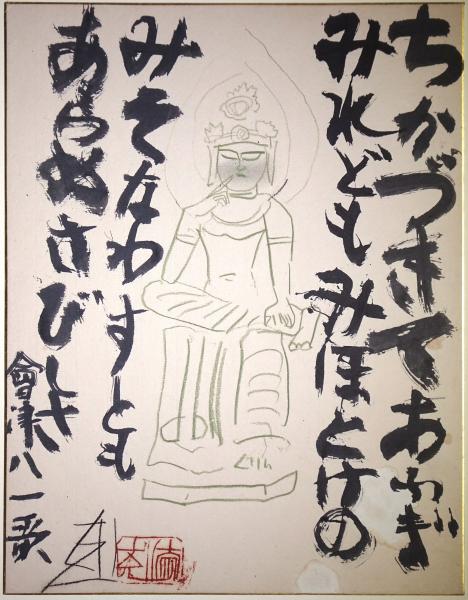 ちかづきてあふぎ
みれどもみほとけの
みそなわすとも
あらぬさびしさ
會津八一歌